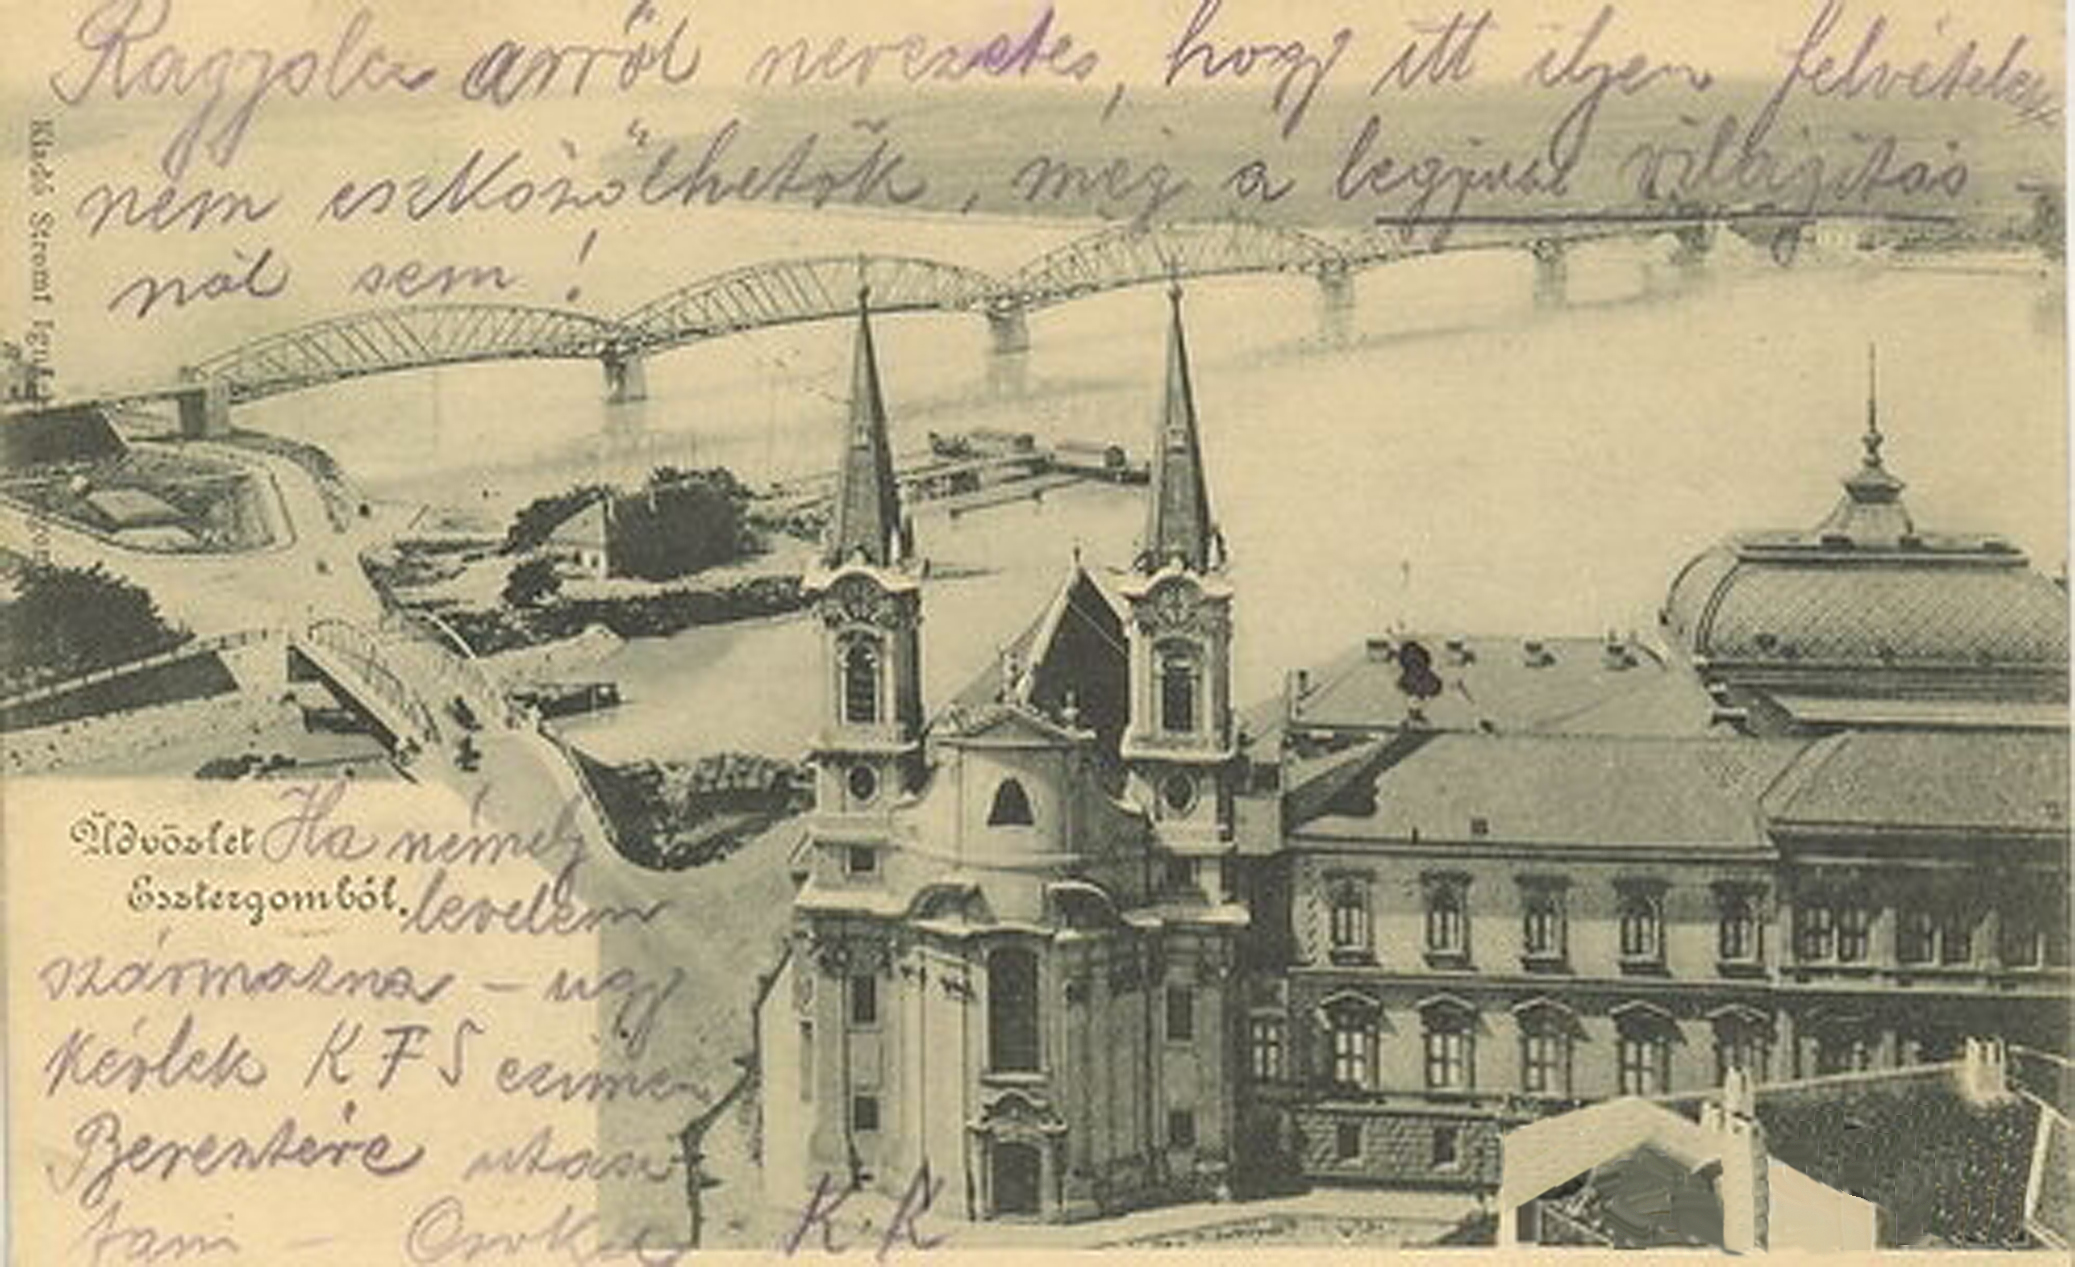 Ragyola arról nevezetes, hogy itt ilyen felvételek
nem eszközölhetők, még a legjobb világítás-
nál sem!
Kiadó Stromf Ignácz
Üdvözlet
Esztergomból.
Ha némely
levelem
származna - ugy
kérlek K F S czimen
Berenterc utasi-
tani - Csók
K. K